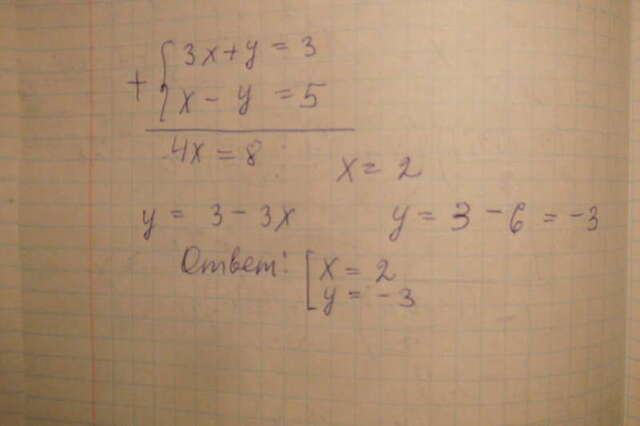 + { 3x + y = 3
x - y = 5
4x = 8
x = 2
y = 3 - 3x y = 3 - 6 = -3
Ответ: [ x = 2
y = -3